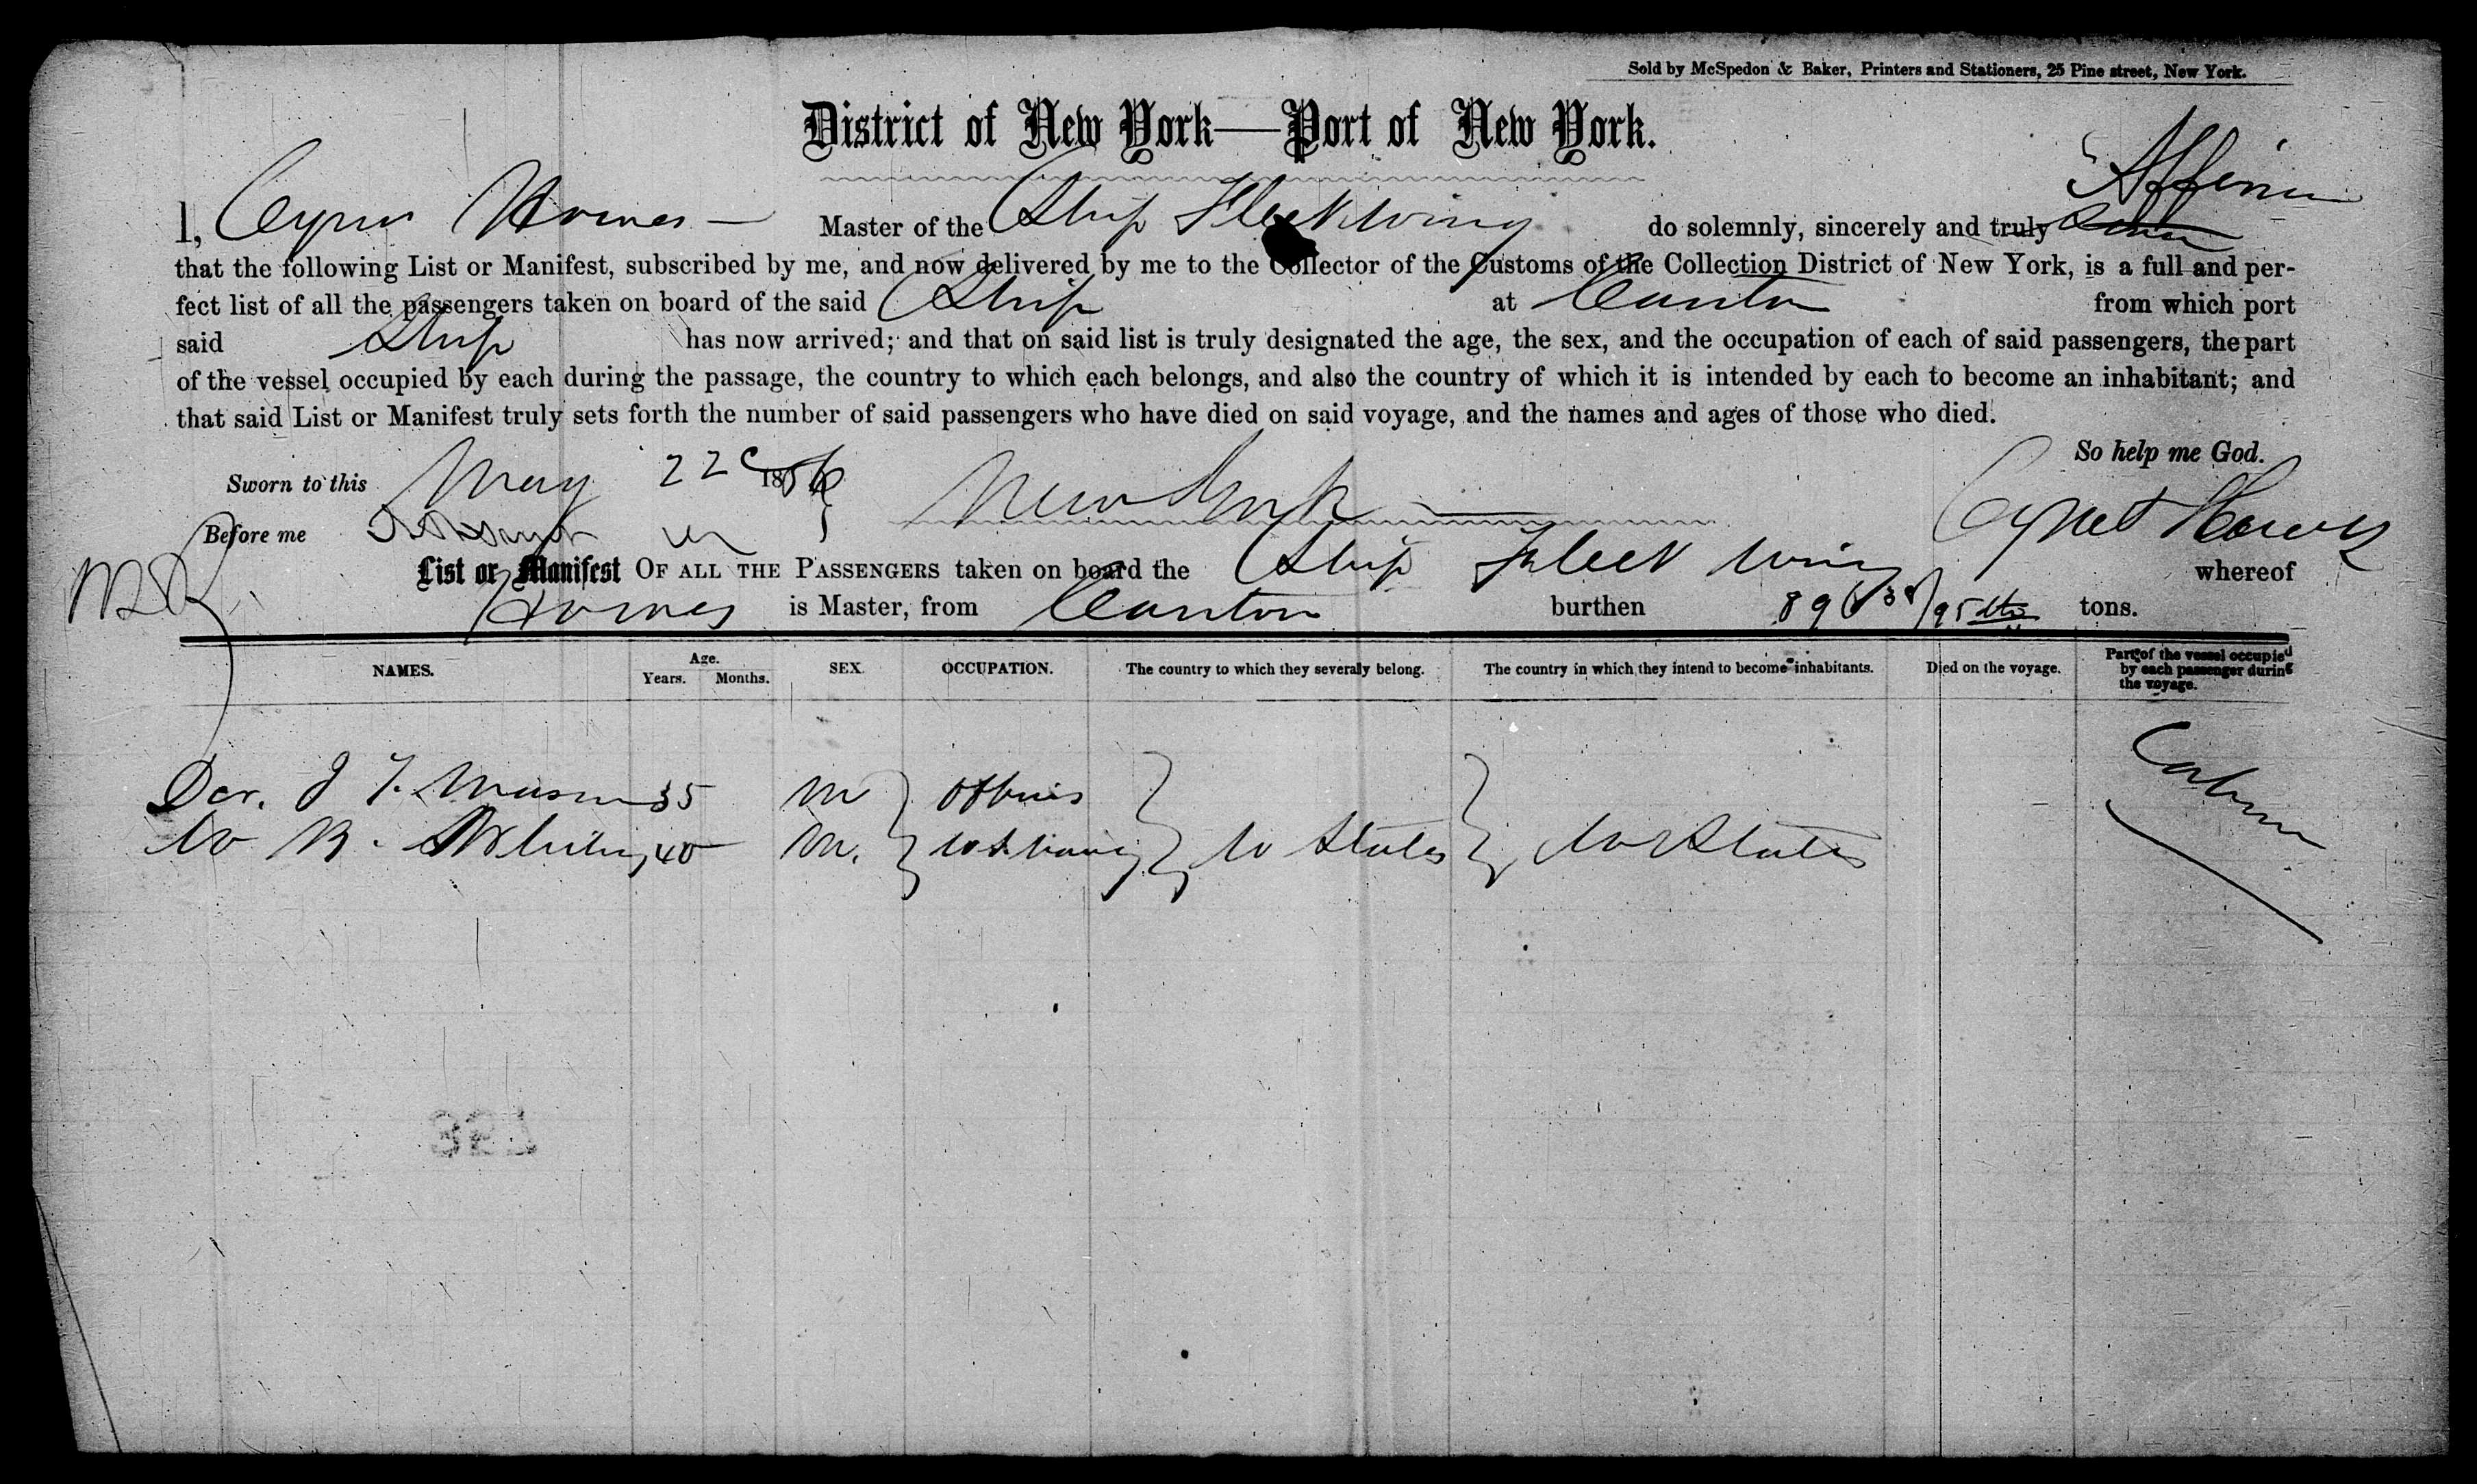 Sold by McSpedon & Baker, Printers and Stationers, 25 Pine street, New York.
District of New York—Port of New York.
Affirm
I, Cyrus Howes — Master of the Ship Fleetwing do solemnly, sincerely and truly
that the following List or Manifest, subscribed by me, and now delivered by me to the Collector of the Customs of the Collection District of New York, is a full and per-
fect list of all the passengers taken on board of the said Ship at Canton from which port
said Ship has now arrived; and that on said list is truly designated the age, the sex, and the occupation of each of said passengers, the part
of the vessel occupied by each during the passage, the country to which each belongs, and also the country of which it is intended by each to become an inhabitant; and
that said List or Manifest truly sets forth the number of said passengers who have died on said voyage, and the names and ages of those who died.
So help me God.
Sworn to this May 22 1856 New York
Before me Howes
List or Manifest OF ALL THE PASSENGERS taken on board the Ship Fleet Wing whereof
Howes is Master, from Canton burthen 95ths tons.
NAMES. Age. Years. Months. SEX. OCCUPATION. The country to which they severally belong. The country in which they intend to become inhabitants. Died on the voyage. Part of the vessel occupied by each passenger during the voyage.
J F. Mason 35 M Officers Cabin
W B. Whiting 40 M. U S. Navy U States U States